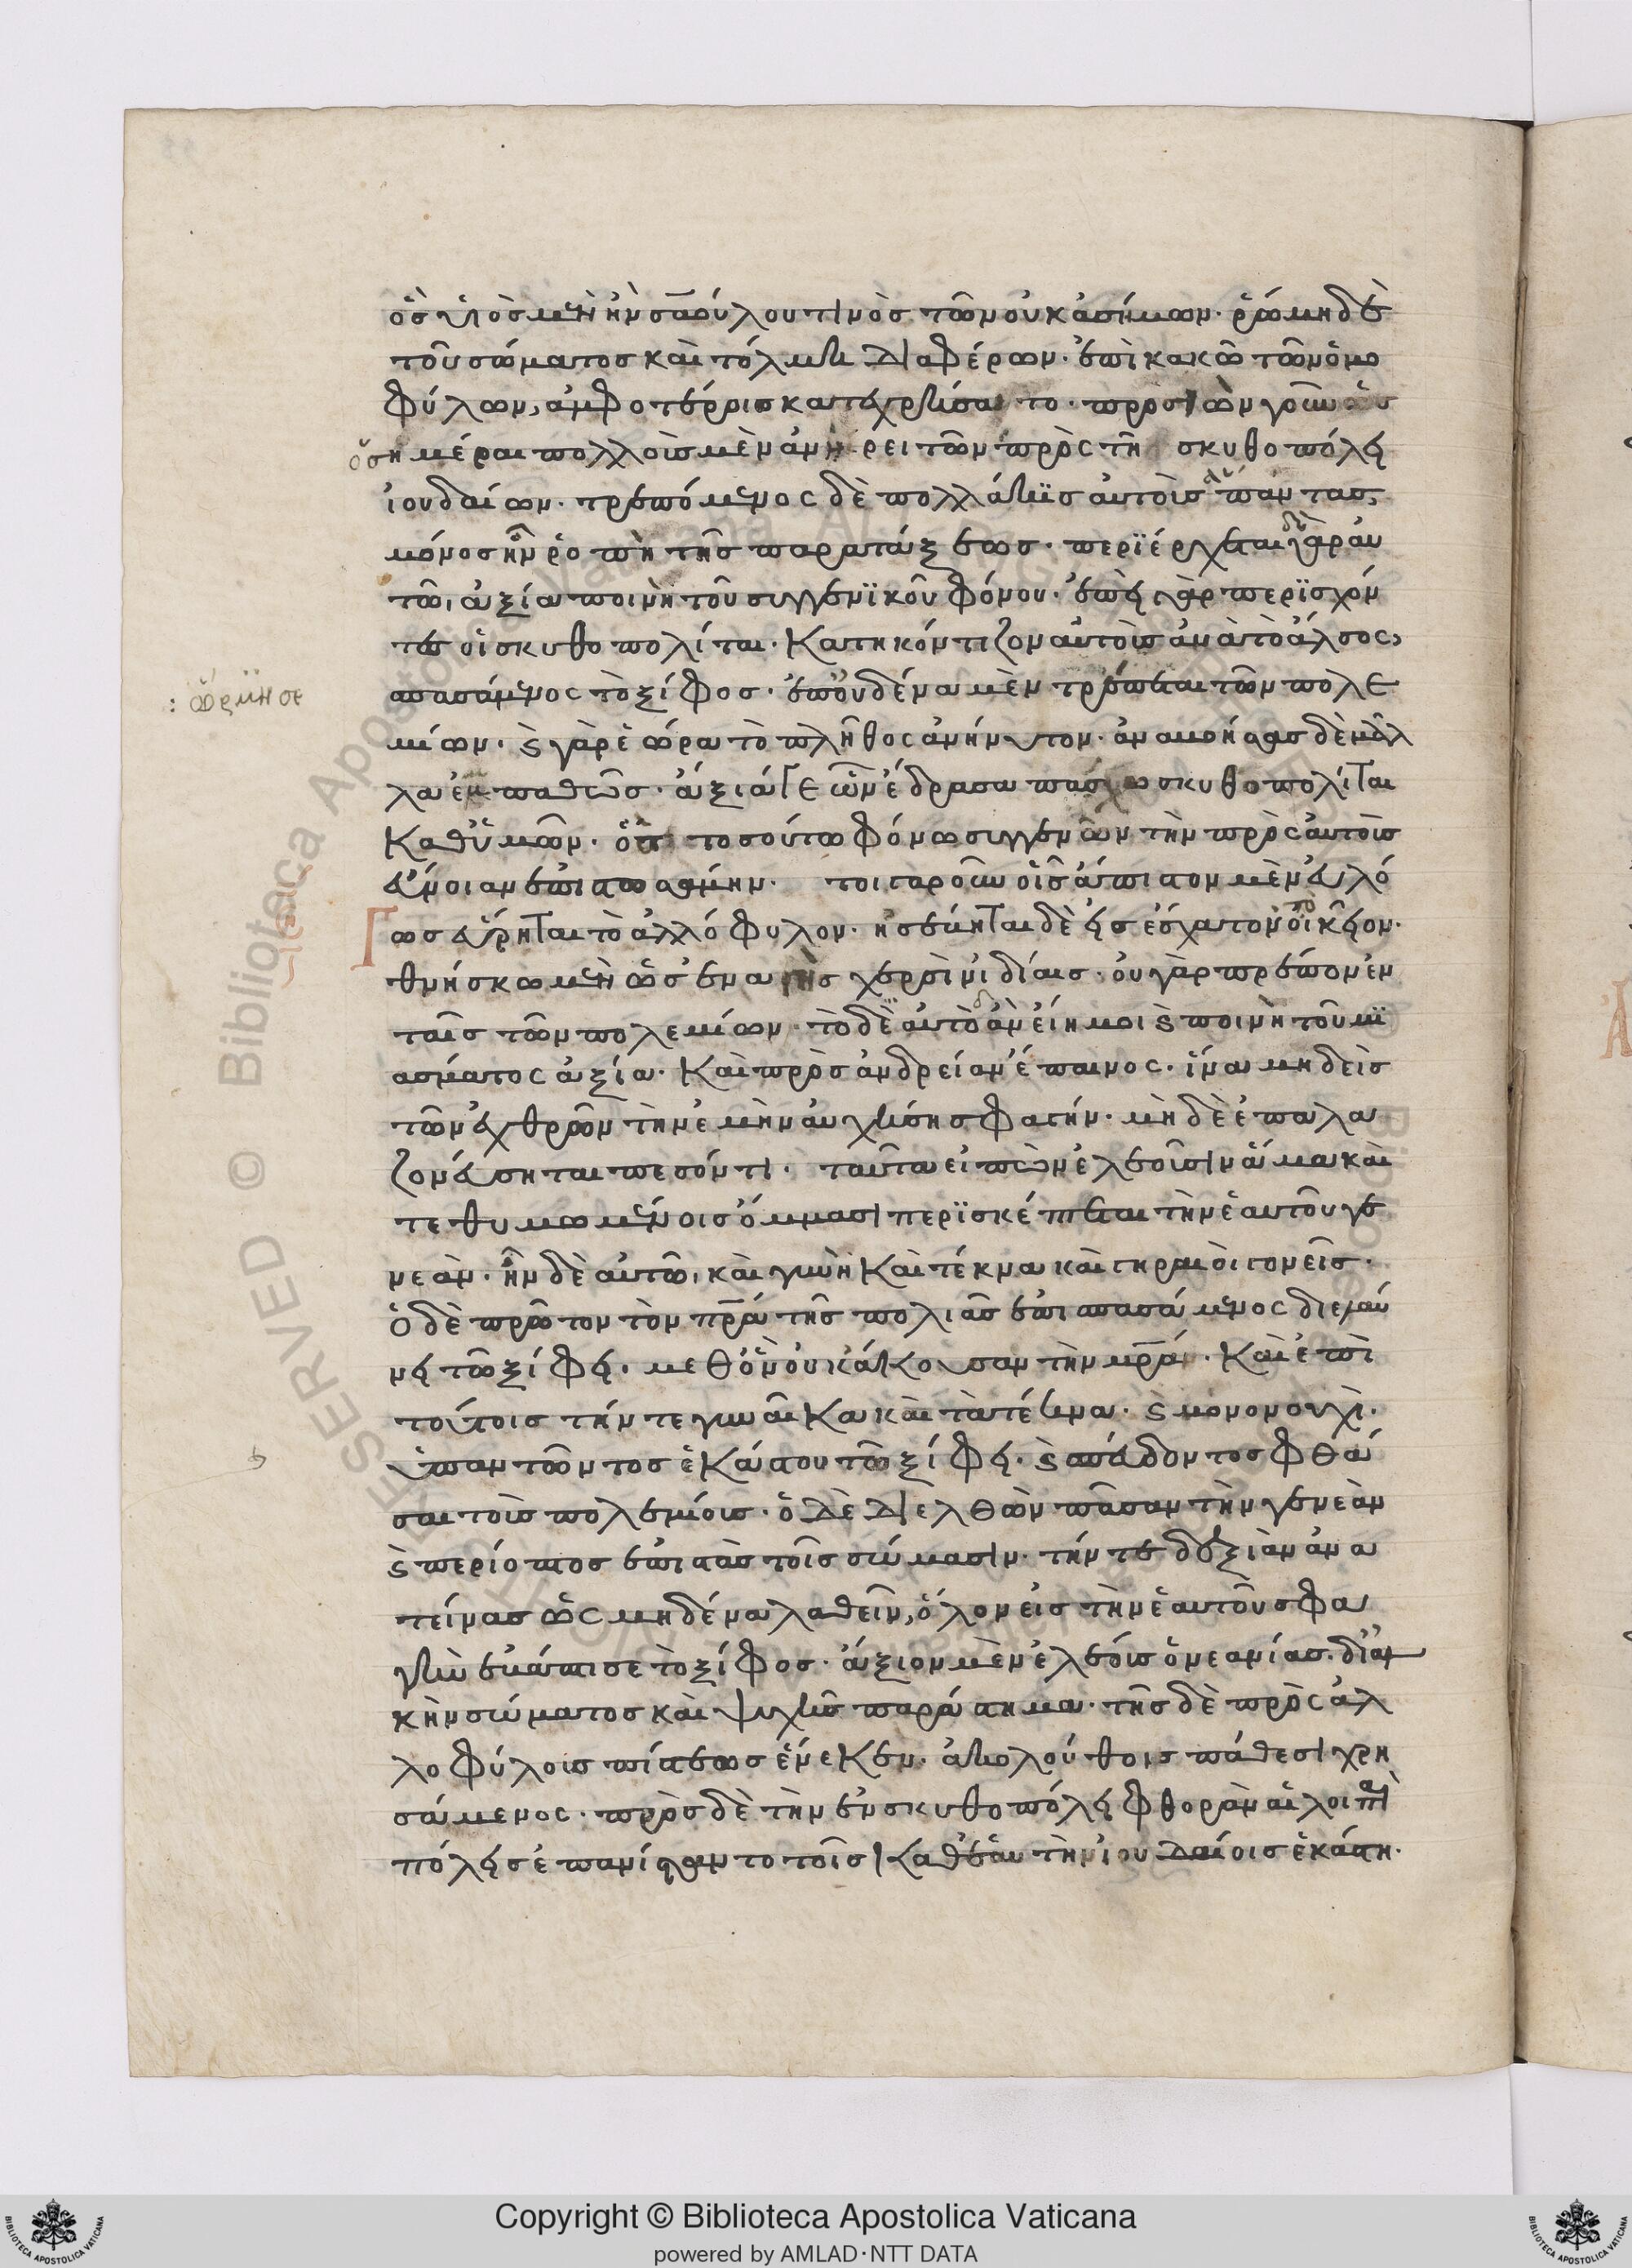 ὃς υἱὸς μὲν ἦν σαούλου τινὸς τῶν οὐκ ἀσήμων. ῥώμη δὲ
τοῦ σώματος καὶ τόλμη διαφέρων. ἐπὶ κακῶ τῶν ὁμο
φύλων, ἀμφοτέροις κατεχρήσατο. προσιὼν γοῦν
ὅσ ημέραι πολλοὺς μὲν ἀνήρει τῶν πρὸς τῆ σκυθοπόλει
ἰουδαίων. τρεπόμενος δὲ πολλάκις αὐτοὺς πάντας,
μόνος ἦν ῥοπὴ τῆς παρατάξεως. περιέρχεται γὰρ αὐ
τῶ, ἀξία ποινὴ τοῦ συγγενικοῦ φόνου. ἐπεὶ γὰρ περισχόν
τες οἱ σκυθοπολίται. κατηκόντιζον αὐτοὺς ἀνὰ τὸ ἄλσος,
σπασάμενος τὸ ξίφος. ἐπ' οὐδένα μὲν τρέπεται τῶν πολε
: ὥρμησε
μίων. καὶ γὰρ ἑώρα τὸ πλῆθος ἀνήνυτον. ἀναβοήσας δὲ μάλ
λα ἐμπαθῶς. ἄξιά γε ὧν ἔδρασα πάσχω σκυθοπολίται
καθ' ὑμῶν. ὅτι τοσούτω φόνω συγγενῶν τὴν πρὸς αὐτοὺς
εὔνοιαν ἐπιστωσάμην. τοιγαροῦν οἷς ἄπιστον μὲν εὐλό
γως εὕρηται τὸ ἀλλόφυλον. ἠσέβηται δὲ εἰς ἔσχατον τὸ οἰκεῖον.
θνήσκωμεν ὡς ἐναγεῖς χερσὶν ἰδίαις. οὐ γὰρ πρέπον ἐν
ταῖς τῶν πολεμίων. τὸ δὲ αὐτὸ ἂν εἴη μοι καὶ ποινὴ τοῦ μι
άσματος ἀξία. καὶ πρὸς ἀνδρείαν ἔπαινος. ἵνα μηδεὶς
τῶν ἐχθρῶν τὴν ἐμὴν αὐχήση σφαγήν. μὴ δὲ ἐπαλα
ζονεύσηται πεσόντι. ταῦτα εἰπὼν ἐλεοῦσιν ἅμα καὶ
τεθυμωμένοις ὄμμασι περισκέπτεται τὴν ἑαυτοῦ γε
νεάν. ἦν δὲ αὐτῶ, καὶ γυνὴ καὶ τέκνα καὶ γηραιοὶ γονεῖς.
ὁ δὲ πρῶτον τὸν πρα τῆς πολιᾶς ἐπισπασάμενος διελαύ
νει τῶ ξίφει. μεθ' ὃν οὐκ ἄκουσαν τὴν μρα. καὶ ἐπὶ
τούτοις τήν τε γυναῖκα καὶ τὰ τέκνα. καὶ μονονουχὶ.
ὑπαντῶντος ἑκάστου τῶ ξίφει. καὶ σπεύδοντος φθά
σαι τοὺς πολεμίους. ὁ δὲ διελθὼν πᾶσαν τὴν γενεὰν
καὶ περίοπτος ἐπιστὰς τοῖς σώμασιν. τήν τε δεξιὰν ἀνα
τείνας ὡς μηδένα λαθεῖν, ὅλον εἰς τὴν ἑαυτοῦ σφα
γὴν ἐβάπτισε τὸ ξίφος. ἄξιον μὲν ἐλέους ὁ νεανίας. δι' ἀλ
κὴν σώματος καὶ ψυχῆς παράστημα. τῆς δὲ πρὸς ἀλ
λοφύλους πίστεως ἕνεκεν. ἀκολούθοις πάθεσι χρη
σάμενος. πρὸς δὲ τὴν ἐν σκυθοπόλει φθορὰν αἱ λοιπαὶ
πόλεις ἐπανίσταντο τοῖς καθ' ἑαυτὴν ἰουδαίοις ἑκάστη.
RESERVED © Biblioteca Apostolica Vaticana
Copyright © Biblioteca Apostolica Vaticana
powered by AMLAD·NTT DATA
BIBLIOTECA APOSTOLICA VATICANA
BIBLIOTECA APOSTOLICA VATICANA